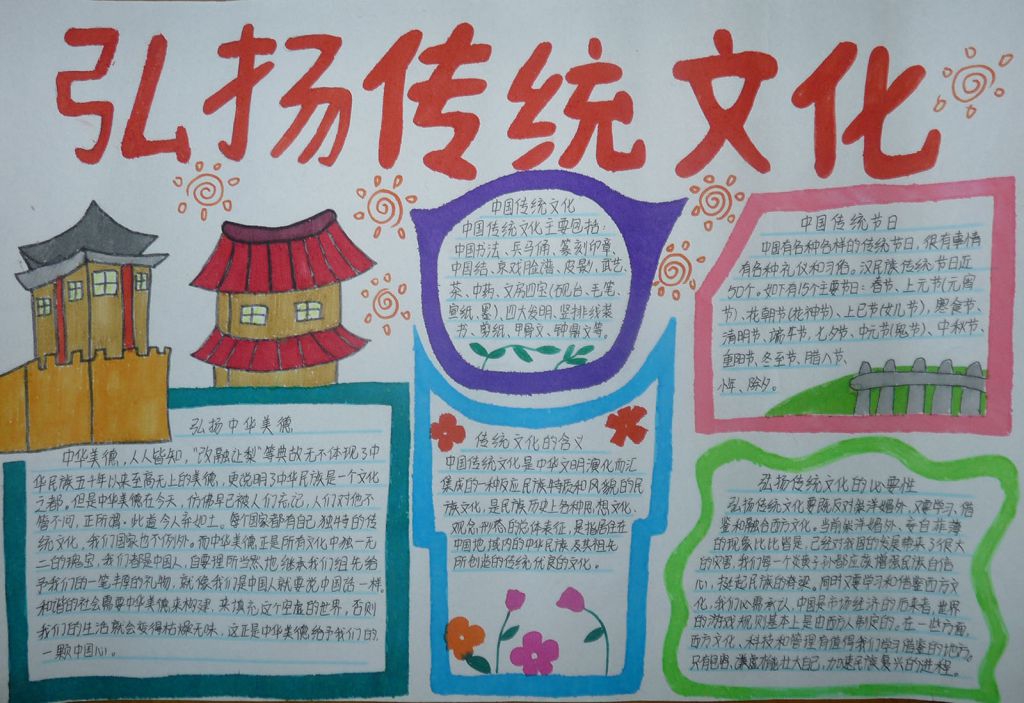 弘扬传统文化
中国传统文化
中国传统文化主要包括:
中国书法、兵马俑、篆刻印章、
中国结、京戏脸谱、皮影、武艺、
茶、中药、文房四宝(砚台、毛笔、
宣纸、墨)、四大发明、竖排线装
书、剪纸、甲骨文、钟鼎文等。
中国传统节日
中国有各种各样的传统节日,很有事情
有各种礼仪和习俗。汉民族传统节日近
50个。如下有15个主要节日:春节、上元节(元宵
节)、花朝节(花神节)、上巳节(女儿节)、寒食节、
清明节、端午节,七夕节、中元节(鬼节)、中秋节、
重阳节、冬至节、腊八节
小年、除夕。
弘扬中华美德
中华美德,人人皆知,“孔融让梨”等典故无不体现了中
华民族五千年以来至高无上的美德,更说明了中华民族是一个文化
之都。但是中华美德在今天,仿佛早已被人们忘记,人们对他不
管不问,正所谓:此道今人弃如土。每个国家都有自己独特的传
统文化,我们国家也不例外。而中华美德正是所有文化中独一无
二的瑰宝,我们都是中国人,自要理所当然地继承我们祖先给
予我们的一笔丰厚的礼物,就像我们是中国人就要说中国话一样。
和谐的社会需要中华美德来构建,来填充这个空虚的世界,否则
我们的生活就会变得枯燥无味,这正是中华美德给予我们的
一颗中国心。
传统文化的含义
传统文化是中华文明演化而汇
集成的一种反应民族特质和风貌的民
族文化,是民族历史上各种思想文化、
观念形态的总体表征,是指居住在
中国地域内的中华民族及其祖先
所创造的传统优良的文化。
弘扬传统文化的必要性
弘扬传统文化要既反对崇洋媚外,又要学习、借
鉴和融合西方文化。当前崇洋媚外、妄自菲薄
的现象比比皆是,已经对我国的发展带来了很大
的灾害,我们每一个炎黄子孙都应该增强民族自信
心,挺起民族的脊梁,同时又要学习和借鉴西方文
化,我们必需承认,中国是市场经济的后来者,世界
的游戏规则基本上是由西方人制定的,在一些方面,
西方文化、科技和管理有值得我们学习借鉴的地方。
只有包容、兼虚才能壮大自己,加速民族复兴的进程。